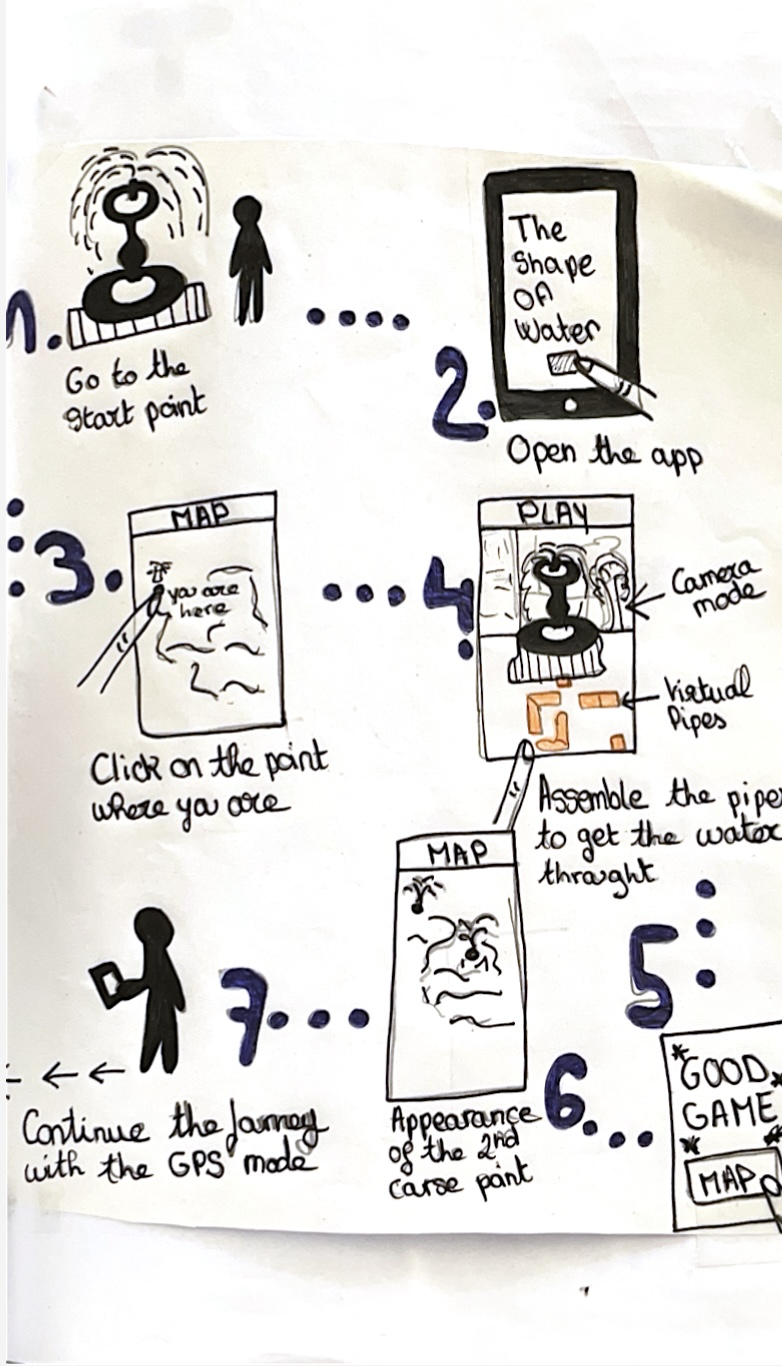 1.
Go to the
Start point
The
Shape
Of
Water
2.
Open the app
3.
MAP
you are
here
Click on the point
where you are
4
PLAY
Camera
mode
Virtual
Pipes
Assemble the pipes
to get the water
throught
5
GOOD
GAME
MAP
6
MAP
Appearance
of the 2nd
carse point
7
Continue the Jarney
with the GPS mode